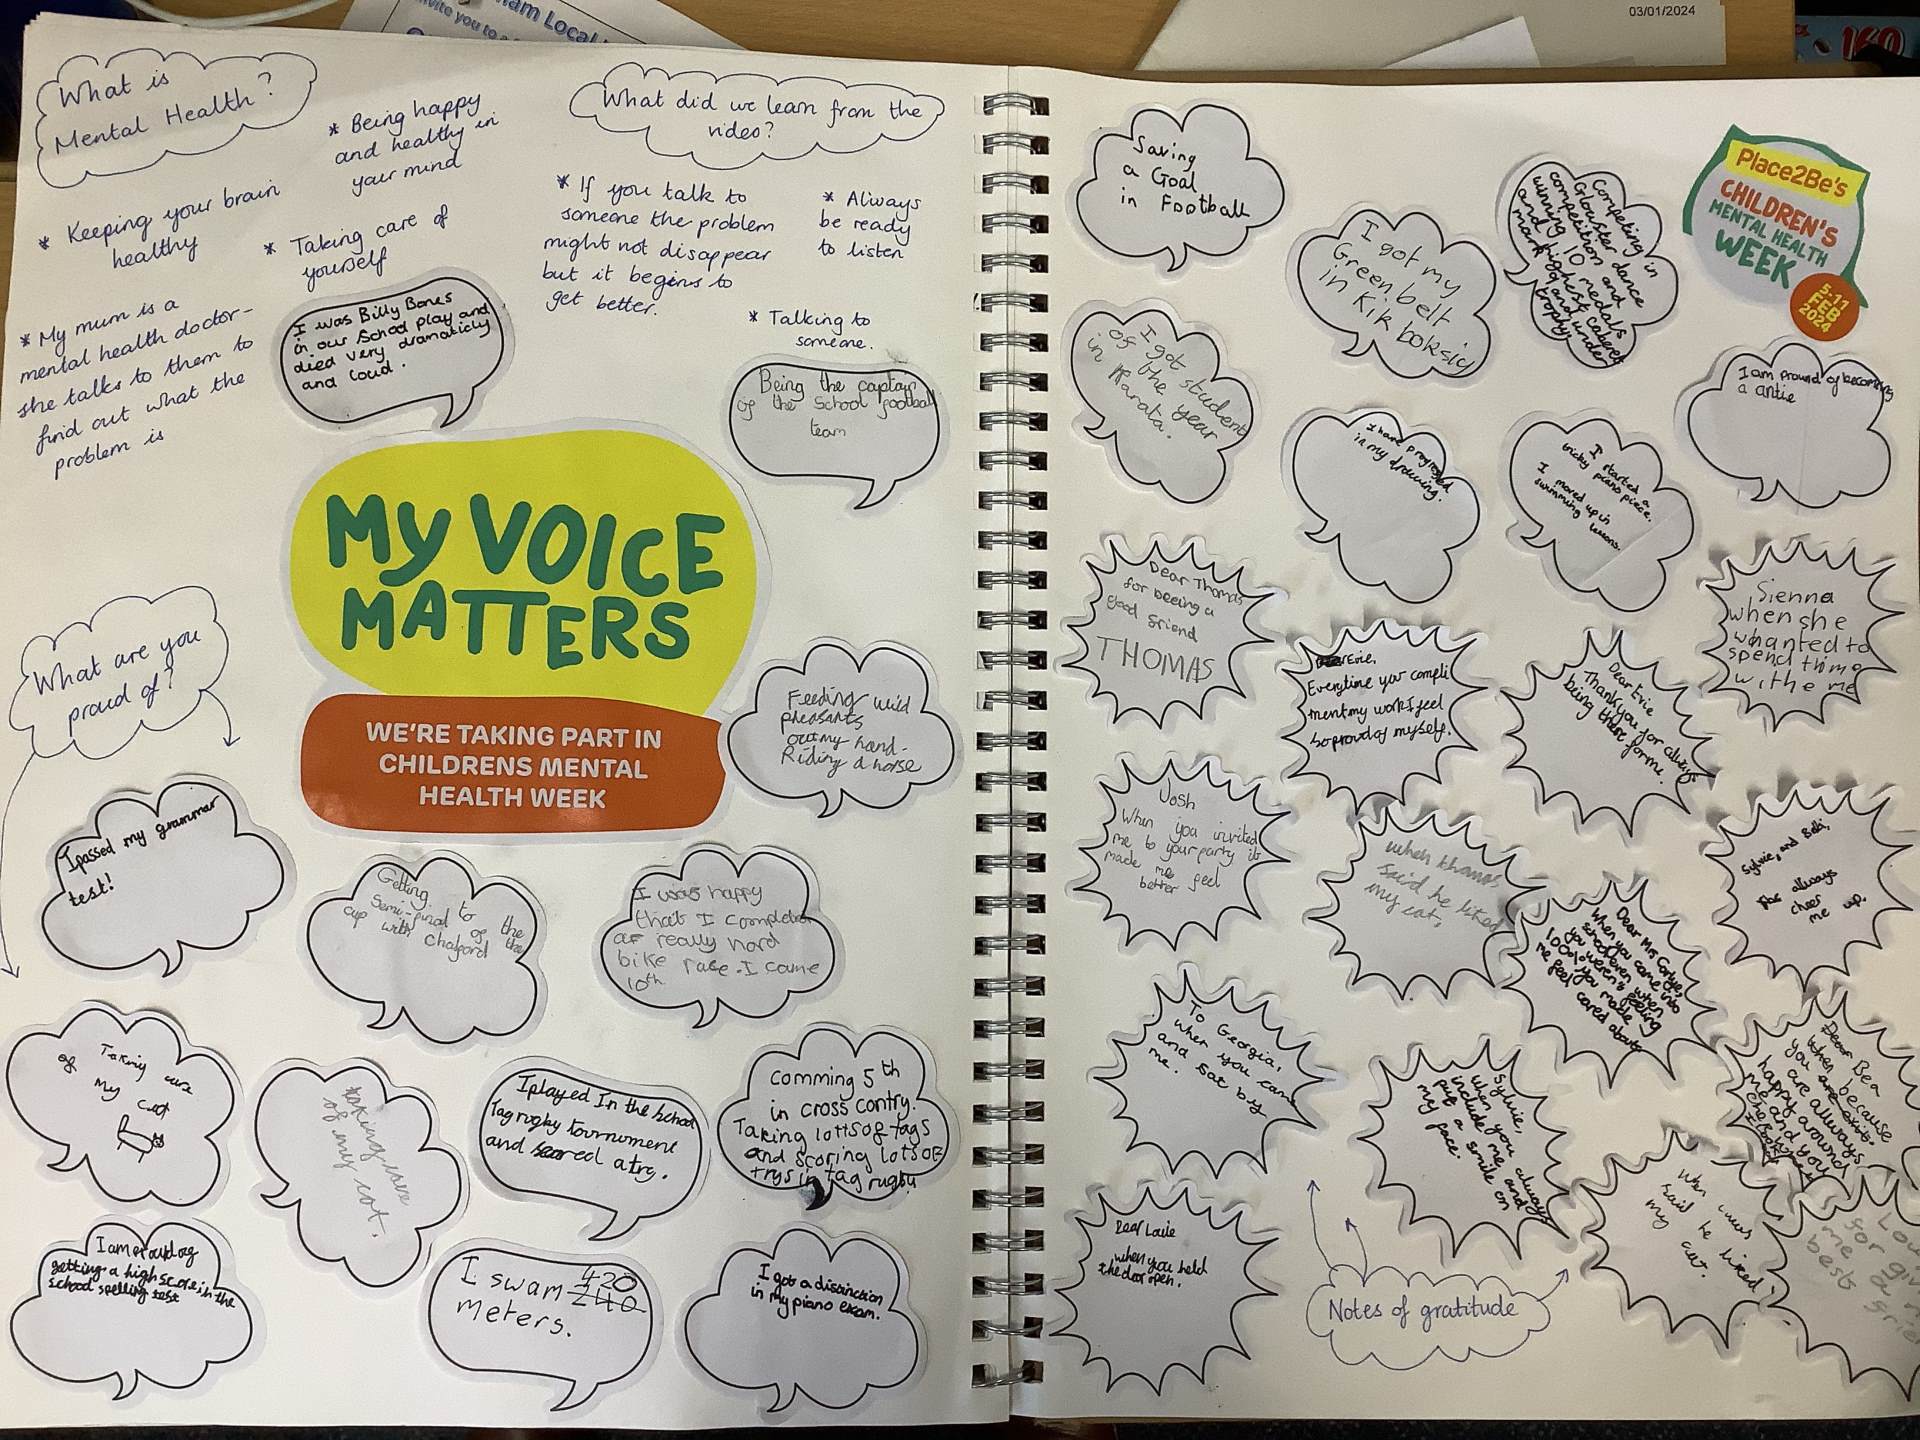 03/01/2024
am Local
invite you to
160
What is
Mental Health?
* Being happy
and healthy in
your mind
* Keeping your brain
healthy
* Taking care of
yourself
* My mum is a
mental health doctor -
she talks to them to
find out what the
problem is
What did we learn from the
video?
* If you talk to
someone the problem
might not disappear
but it begins to
get better.
* Always
be ready
to listen
* Talking to
someone.
I was Billy Bones
in our school play and
died very dramaticly
and loud.
Being the captain
of the school football
team
MY VOICE
MATTERS
WE'RE TAKING PART IN
CHILDRENS MENTAL
HEALTH WEEK
What are you
proud of?
Feeding wild
pheasants
out my hand.
Riding a horse
I passed my grammar
test!
Getting to the
Semi-final of the
cup with Chalford
I was happy
that I completed
a really hard
bike race. I came
10th
Taking care
of my cat
taking care
of my cat.
I played In the school
Tag rugby tournument
and scored a try.
comming 5th
in cross contry.
Taking lotts of tags
and scoring lots of
trys in tag rugby
I am proud of
getting a high score in the
school spelling test
I swam 420
240
meters.
I got a distinction
in my piano exam.
Saving
a Goal
in Football
I got my
Green belt
in Kik boksig
Competing in
Glouster dance
competition and
winning 10 medals
and highest
mark and under
trophy
Place2Be's
CHILDREN'S
MENTAL HEALTH
WEEK
5-11
FEB
2024
I got student
of the year
in Karata.
I have progressed
in my drawing.
I started a
tricky piano piece.
I moved up in
swimming lessons.
I am pround of becoming
a antie
Dear Thomas
for beeing a
good friend
THOMAS
Evie,
Everytime you compli
ment my work I feel
so proud of myself.
Dear Evie
Thank you for always
being there for me.
Sienna
when she
whanted to
spend thime
withe me
Josh
When you invited
me to your party it
made me feel
better
when
said he liked
my cat,
Dear Mrs
When you came into
school even when
you weren't feeling
100% you made
me feel cared about
Sylvie, and Bea,
for always
cheer
me up.
To Georgia,
when you came
and sat by
me.
Sylvie,
when you always
include me and
put a smile on
my face.
Dear Bea
When because
you are
are always
happy around
me and you
Dear Louie
when you held
the door open.
Notes of gratitude
When
said he liked
my cat.
for
me
bests